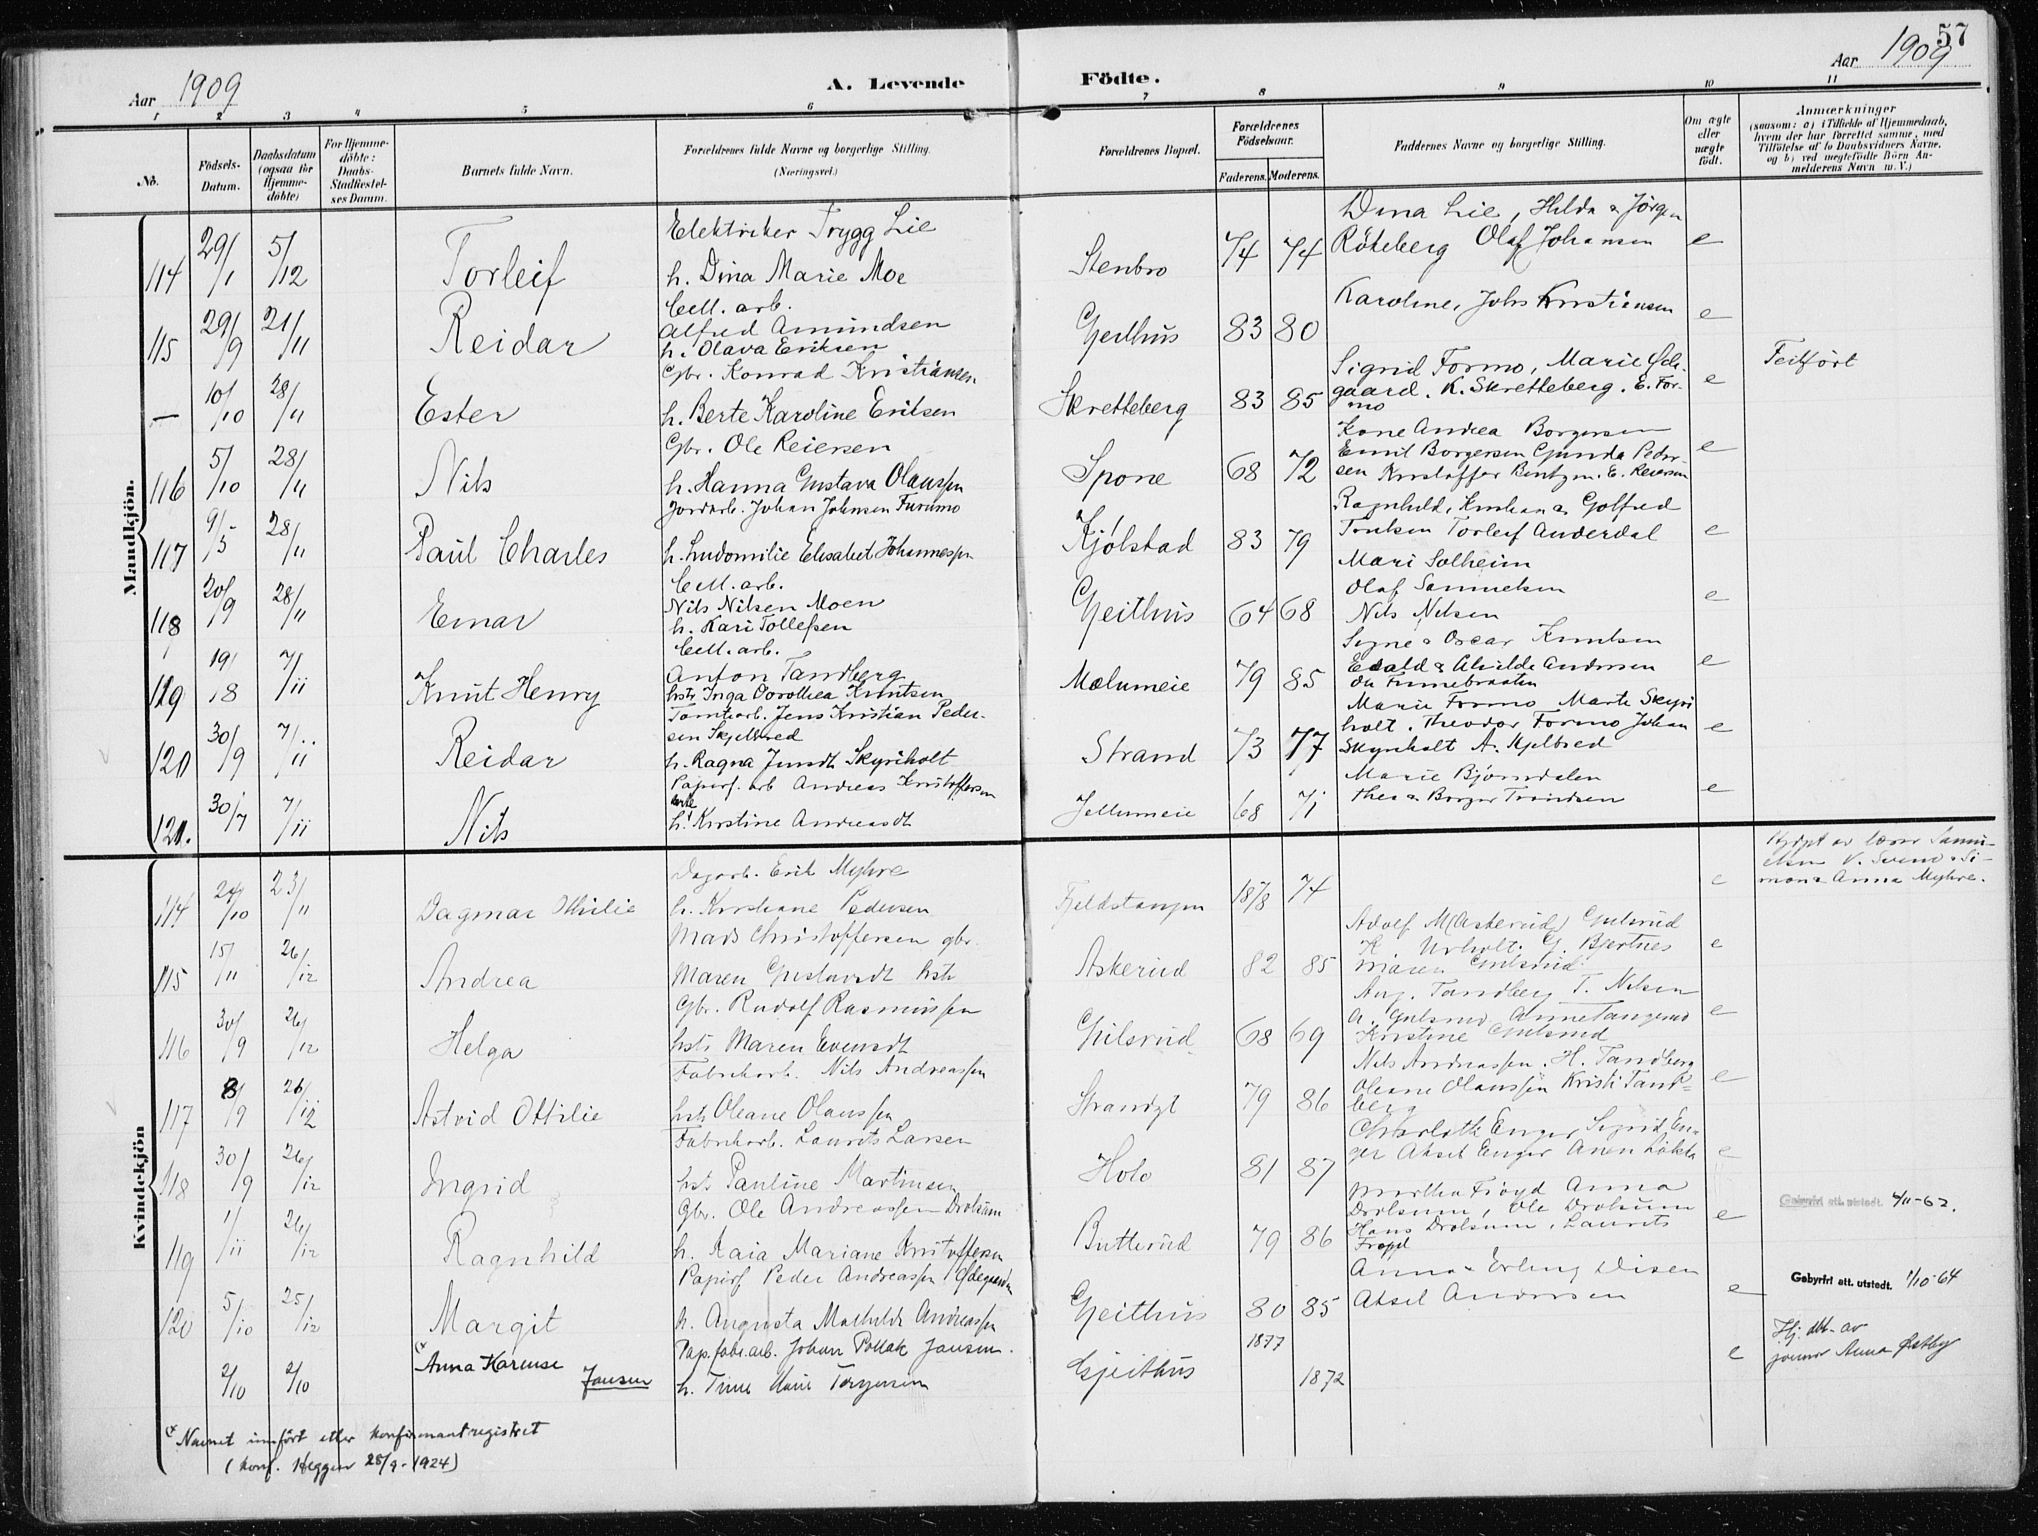 57
Aar 1909
A. Levende Födte.
Aar 1909
1 2 3 4 5 6 7 8 9 10 11
No.
Födsels-Datum.
Daabsdatum (ogsaa for Hjemme-döbte)
For Hjemme-döbte: Daabs-Stadfæstel-ses Datum.
Barnets fulde Navn.
Forældrenes fulde Navne og borgerlige Stilling.
(Næringsvei.)
Forældrenes Bopæl.
Forældrenes Födselsaar.
Faderens. Moderens.
Faddernes Navne og borgerlige Stilling.
Om ægte eller uægte födt.
Anmærkninger
(saasom: a) i Tilfælde af Hjemmedaab, hvem der har forrettet samme, med Tilföielse af to Daabsvidners Navne, og b) ved uægtefödte Börn An-melderens Navn m. V.)
Mandkjön.
114 29/1 5/12 Torleif
Elektriker Trygg Lie
h. Dina Marie Moe
Stenbro 74 74
Dina Lie, Hilda & Jörgen
Rökeberg Olaf Johansen e
115 29/9 21/11 Reidar
Cell. arb.
Alfred Amundsen
h. Olava Eriksen
Geithus 83 80
Karoline, Johs Kristiansen e
— 10/10 28/11 Ester
Gbr. Konrad Kristiansen
h. Berte Karoline Eriksen
Skretteberg 83 85
Sigrid Formo, Marie Øde-
gaard. K. Skretteberg. E. For-
mo e
Feilfört
116 5/10 28/11 Nils
Gbr. Ole Reiersen
h. Hanna Gustava Olaussen
Spone 68 72
Kone Andrea Borgersen
Emil Borgersen Gunda Peder-
sen Kristoffer Bentzen. E. Reiersen e
117 9/5 28/11 Paul Charles
Jordarb. Johan Johnsen Furumo
h. Ludomilie Elisabet Johannessen
Kjölstad 83 79
Ragnhild, Kristian & Golfred
Trulsen Torleif Anderdal e
Mari Solheim
118 20/9 28/11 Einar
Cell. arb.
Nils Nilsen Moen
h. Kari Tollefsen
Geithus 64 68
Olaf Samuelsen
Nils Nilsen e
119 19/8 7/11 Knut Henry
Cell. arb.
Anton Tandberg
hstr Inga Dorothea Knutsen
Mælumeie 79 85
Signe & Oscar Knutsen
Edvald & Alvilde Andersen e
120 30/9 7/11 Reidar
Tomtearb. Jens Kristian Peder-
sen Skjelbred
h. Ragna Jensdt Skyriholt
Strand 73 77
Marie Formo Marte Skyri
holt. Theodor Formo Johan
Skyriholt A. Kjelbred e
121. 30/7 7/11 Nils
Papirf. arb Andreas Kristoffersen
h. Kirstine Andreasdt
Jellumeie 68 71
Marie Bjørndalen
Thea & Borger Trondsen e
Kvindekjön
114 24/10 23/11 Dagmar Othilie
Dagarb. Erik Myhre
h. Kirstiane Pedersen
Fjeldstangen 1878 74 e
Hjdpt av lærer Samu-
elsen V. Svend & Si-
mona Anna Myhre.
115 15/11 26/12 Andrea
Mads Christoffersen gbr.
Maren Gustavsdt hstr
Askerud 82 85
Adolf M(Askerud) Gulsrud
K Urholt. G. Bjertnes
Maren Gulsrud e
116 30/9 26/12 Helga
Gbr. Rudolf Rasmussen
hstr Maren Evensdt
Gulsrud 68 69
Aug. Tandberg T. Nilsen
A. Gulsrud Anne Tangerud
Kristine Gulsrud e
117 8/9 26/12 Astrid Ottilie
Fabrikarb. Nils Andreassen
hstr Oleane Olaussen
Strandgt 79 86
Nils Andreassen. H. Tandberg
Oleane Olaussen Kristi Tand-
berg e
118 30/9 26/12 Ingrid
Fabrikarb. Laurits Larsen
hstr Pauline Martinsen
Holo 81 87
Charlotte Enger, Sigrid En-
ger Aksel Enger Anen Løkta e
119 1/11 26/12 Ragnhild
Gbr. Ole Andreassen Drolsum
h. Kaia Mariane Kristoffersen
Butterud 79 86
Martha Frøyd Anna
Drolsum, Ole Drolsum
Hans Drolsum, Laurits
e
Gebyrfri att. utstedt. 4/11-62.
120 5/10 25/12 Margit
Papirf Peder Andreassen Ødegaarden
h. Augusta Mathilde Andreassen
Geithus 80 85
Anna & Erling Disen
Aksel Andersen e
Gebyrfri att. utstedt. 1/10-64
2/10 2/10 x Anna Karense Jansen
Pap.fabr.arb. Johan Pollak Jansen.
h. Tine Marie Torgersen
Gjeithus 1877 1872 e
Hj. dbt. av
jormor Anna Østby
x Navnet innfört etter konfirmantregistret
(konf. Heggen 28/9-1924)